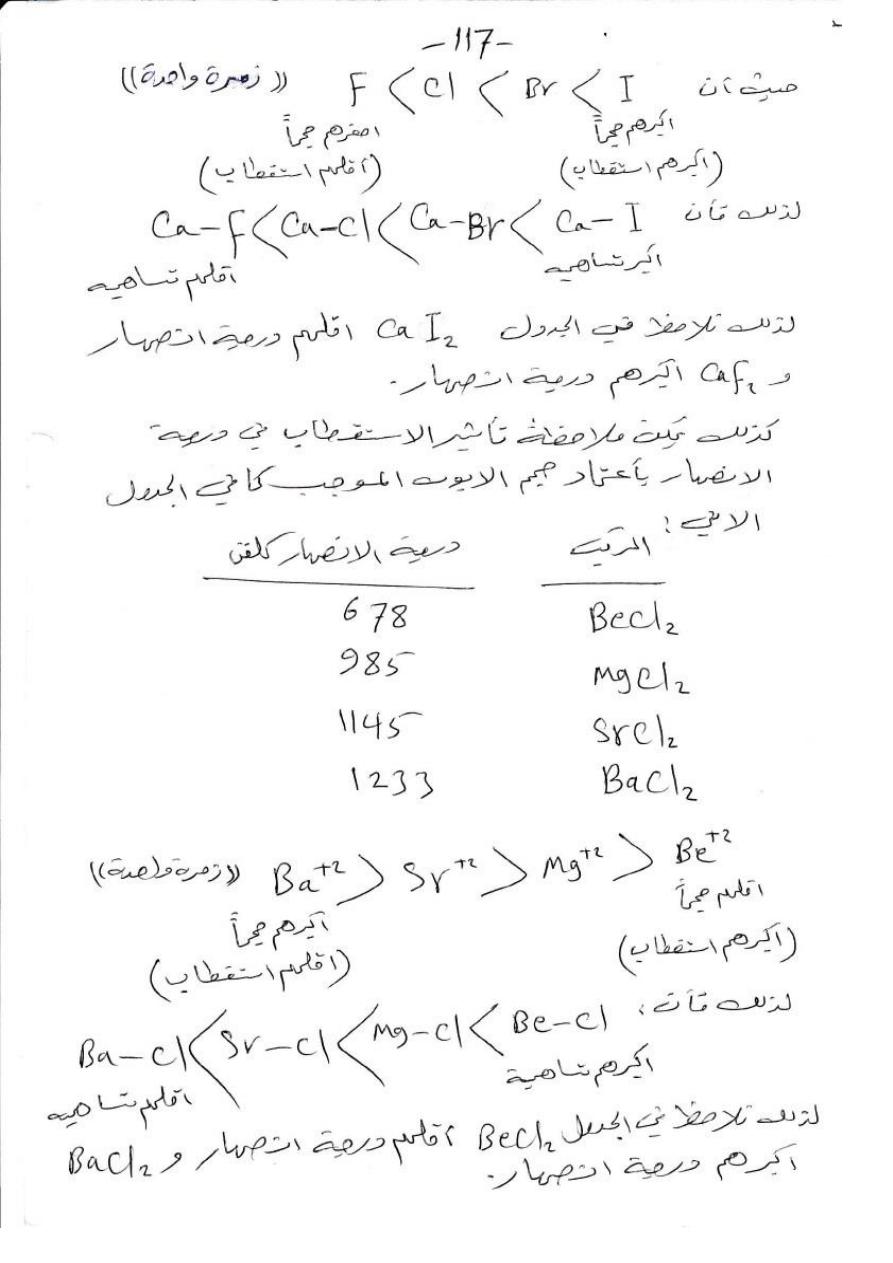 -117-
حيث أن F < Cl < Br < I ((زمرة واحدة))
اكبرهم حجماً اصغرهم حجماً
(اكبرهم استقطاب) (أقلهم استقطاب)
لذلك فأن Ca-F < Ca-Cl < Ca-Br < Ca-I
اكبر تساهميه أقلهم تساهميه
لذلك نلاحظ في الجدول CaI₂ اقلهم درجة انصهار
و CaF₂ اكبرهم درجة انصهار.
كذلك يمكن ملاحظة تأثير الاستقطاب في درجة
الانصهار بأعتماد حجم الايون الموجب كما في الجدول
الاتي:
المركب درجة الانصهار كلفن
BeCl₂ 678
MgCl₂ 985
SrCl₂ 1145
BaCl₂ 1233
((زمرة واحدة)) Ba⁺² > Sr⁺² > Mg⁺² > Be⁺²
اقلهم حجماً اكبرهم حجماً
(اكبرهم استقطاب) (اقلهم استقطاب)
لذلك فأن: Ba-Cl < Sr-Cl < Mg-Cl < Be-Cl
اكبرهم تساهمية اقلهم تساهميه
لذلك نلاحظ في الجدول BeCl₂ أقلهم درجة انصهار و BaCl₂
اكبرهم درجة انصهار.